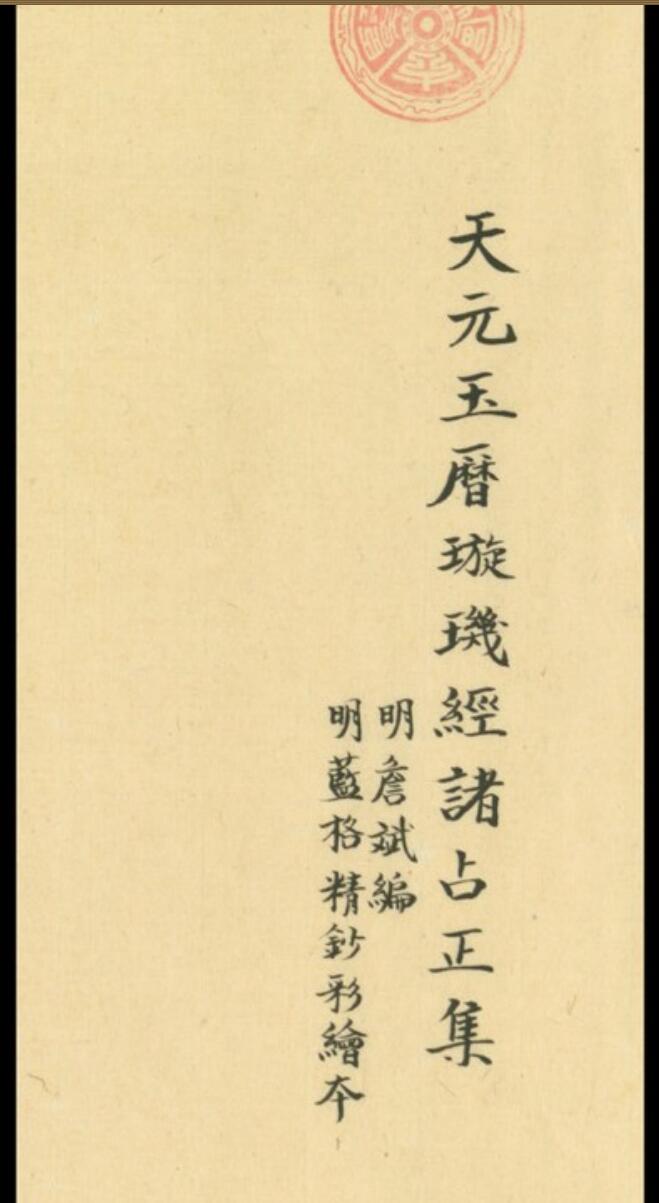 天元玉曆璇璣經諸占正集
明詹斌編
明藍格精鈔彩繪本